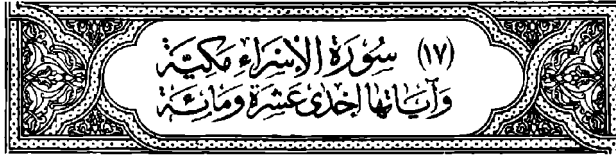 (١٧) سُورَةُ الإِسْرَاءِ مَكِيَّة
وَآيَاتهَا إِحْدَىٰ عَشَرَةَ وَمَائِة